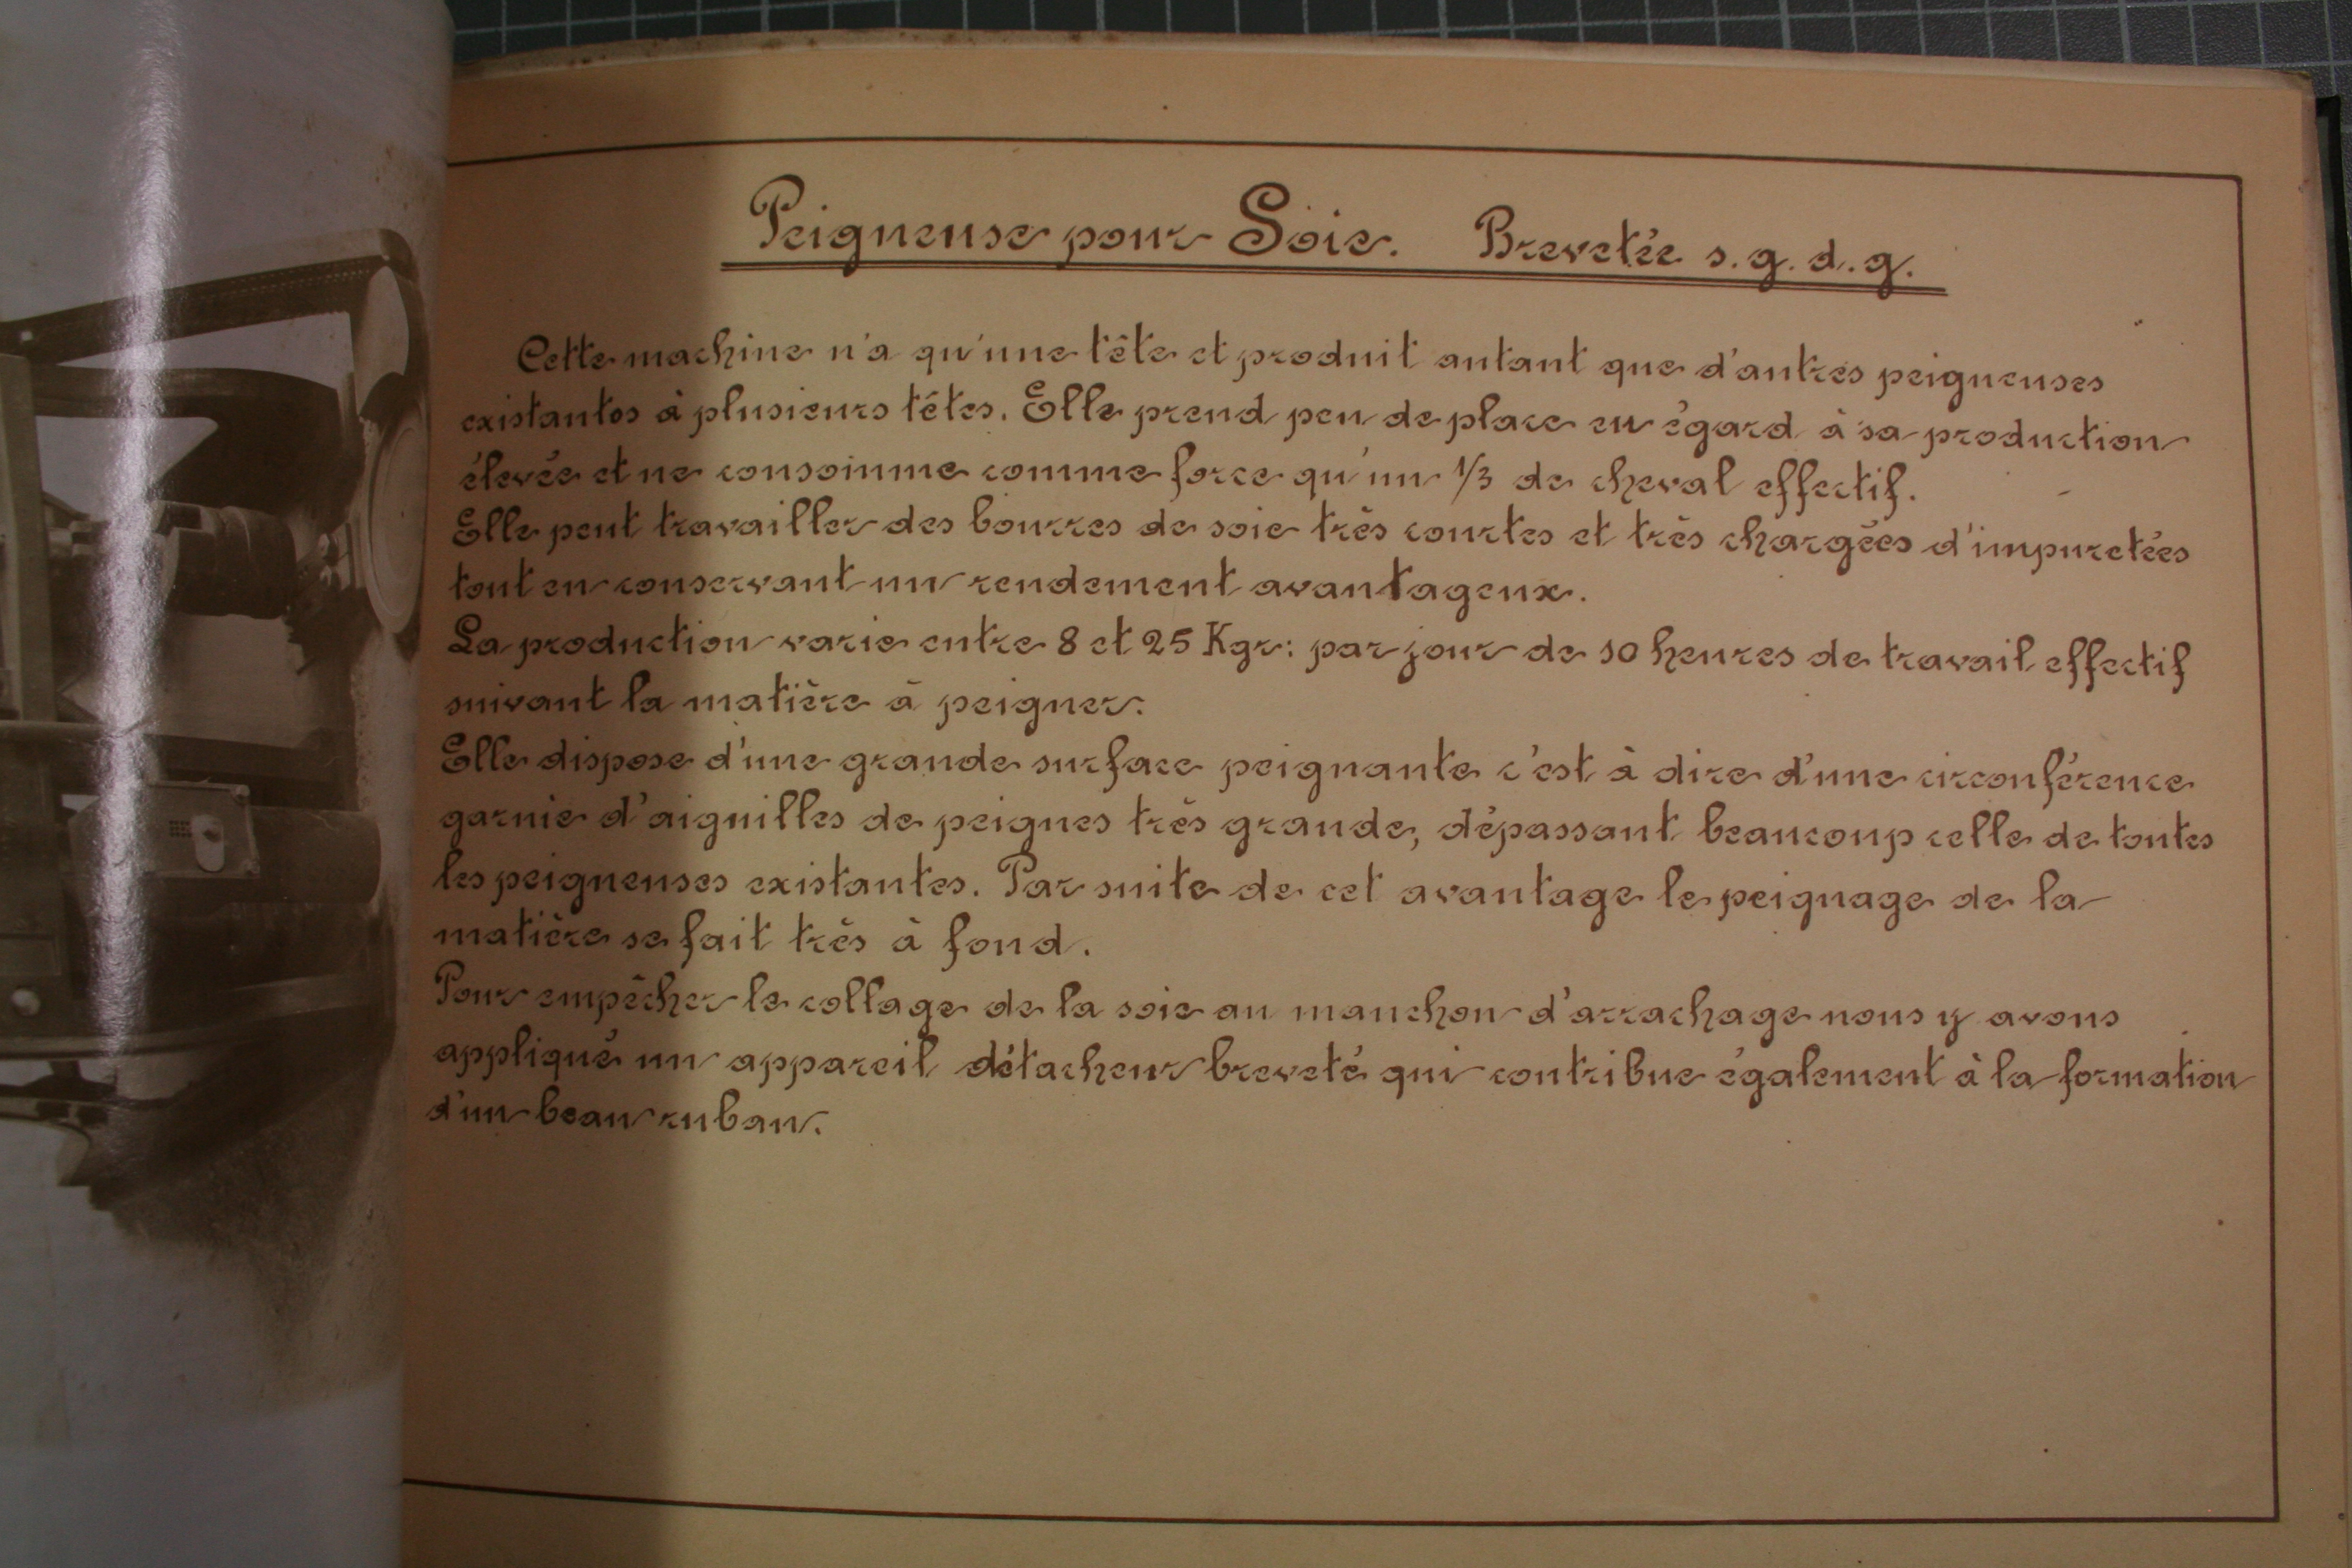 Peigneuse pour Soie. Brevetée s.g.d.g.
Cette machine n'a qu'une tête et produit autant que d'autres peigneuses
existantes à plusieurs têtes. Elle prend peu de place eu égard à sa production
élevée et ne consomme comme force qu'un 1/3 de cheval effectif.
Elle peut travailler des bourres de soie très courtes et très chargées d'impuretées
tout en conservant un rendement avantageux.
La production varie entre 8 et 25 Kgr: par jour de 10 heures de travail effectif
suivant la matière à peigner.
Elle dispose d'une grande surface peignante c'est à dire d'une circonférence
garnie d'aiguilles de peignes très grande, dépassant beaucoup celle de toutes
les peigneuses existantes. Par suite de cet avantage le peignage de la
matière se fait très à fond.
Pour empêcher le collage de la soie au manchon d'arrachage nous y avons
appliqué un appareil détacheur breveté qui contribue également à la formation
d'un beau ruban.